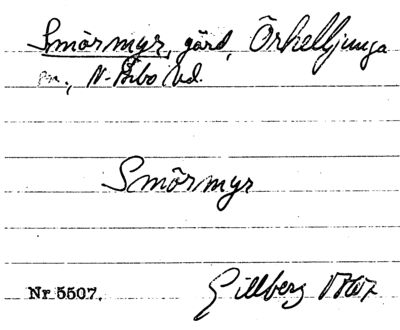 Smörmyr, gård, Örkelljunga
sn., N. Åsbo hd.
Smörmyr
Nr 5507. Gillberg 1767